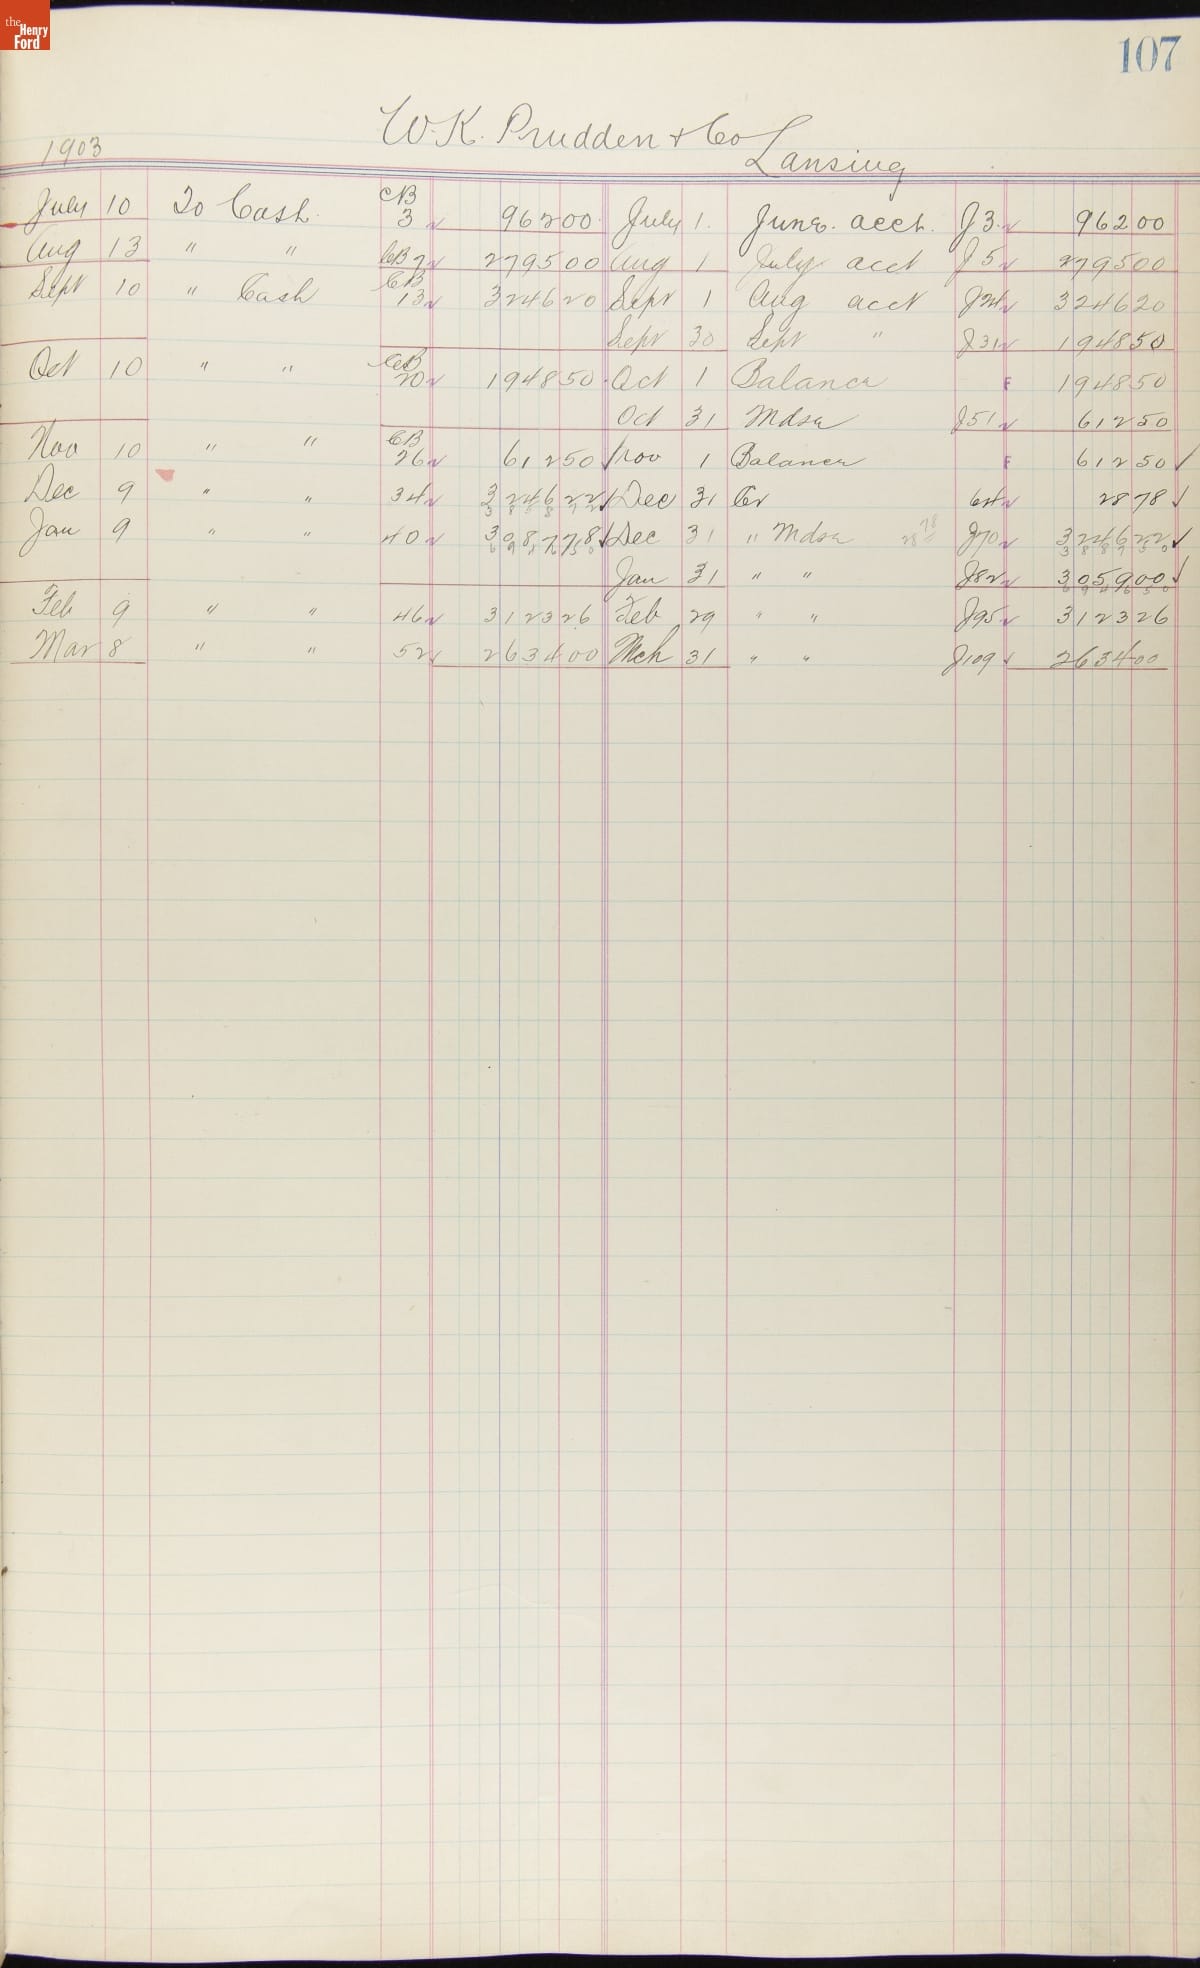 the
Henry
Ford
107
W. K. Prudden & Co
Lansing
1903
July 10 To Cash CB 3 962 00 July 1. June. acct. J3 962 00
Aug 13 " " CB 7 2795 00 Aug 1 July acct J5 2795 00
Sept 10 " Cash CB 13 3246 20 Sept 1 Aug acct 3246 20
Sept 30 Sept " J31 1948 50
Oct 10 " " CB 20 1948 50 Oct 1 Balance F 1948 50
Oct 31 Mdse J51 612 50
Nov 10 " " CB 26 612 50 Nov 1 Balance F 612 50
Dec 9 " " 34 3246 22 Dec 31 Cr 64 28 78
Jan 9 " " 40 3087 78 Dec 31 " Mdse 28 78 J70 3246 22
Jan 31 " " J82 3059 00
Feb 9 " " 46 3123 26 Feb 29 " " J95 3123 26
Mar 8 " " 52 2634 00 Mch 31 " " J109 2634 00